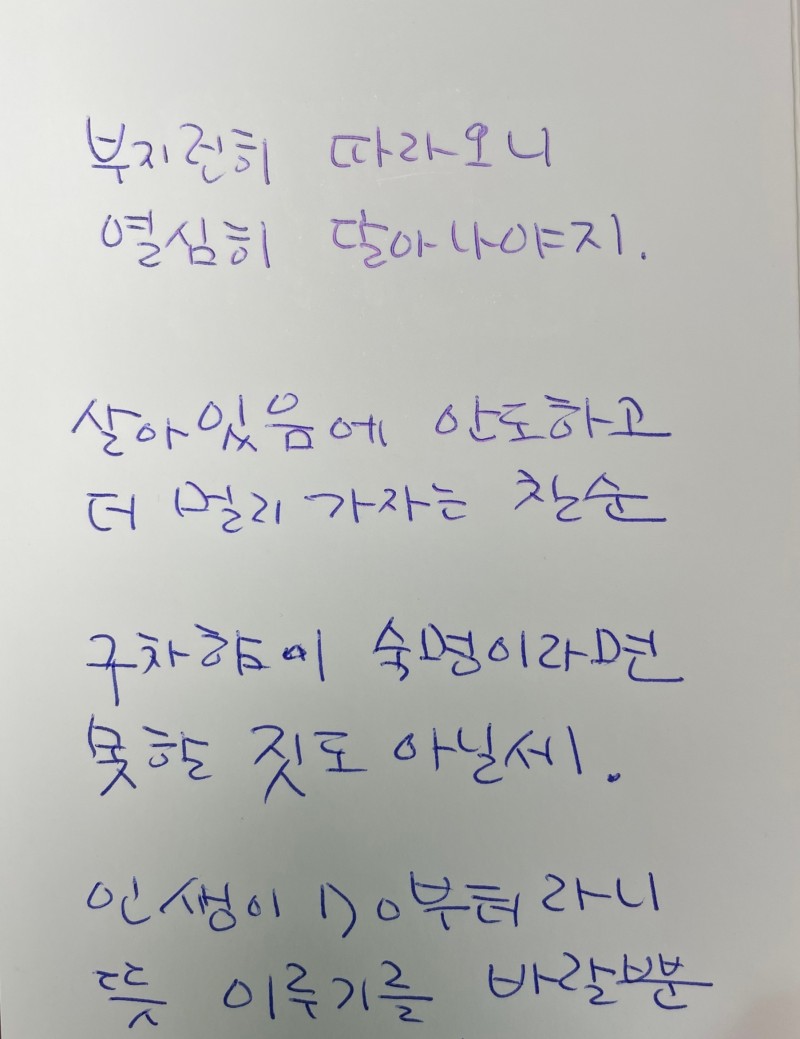 부지런히 따라오니
열심히 달아나야지.
살아있음에 안도하고
더 멀리 가자는 찰순
구차함이 숙명이라면
못할 짓도 아닐세.
인생이 70부터라니
뜻 이루기를 바랄뿐